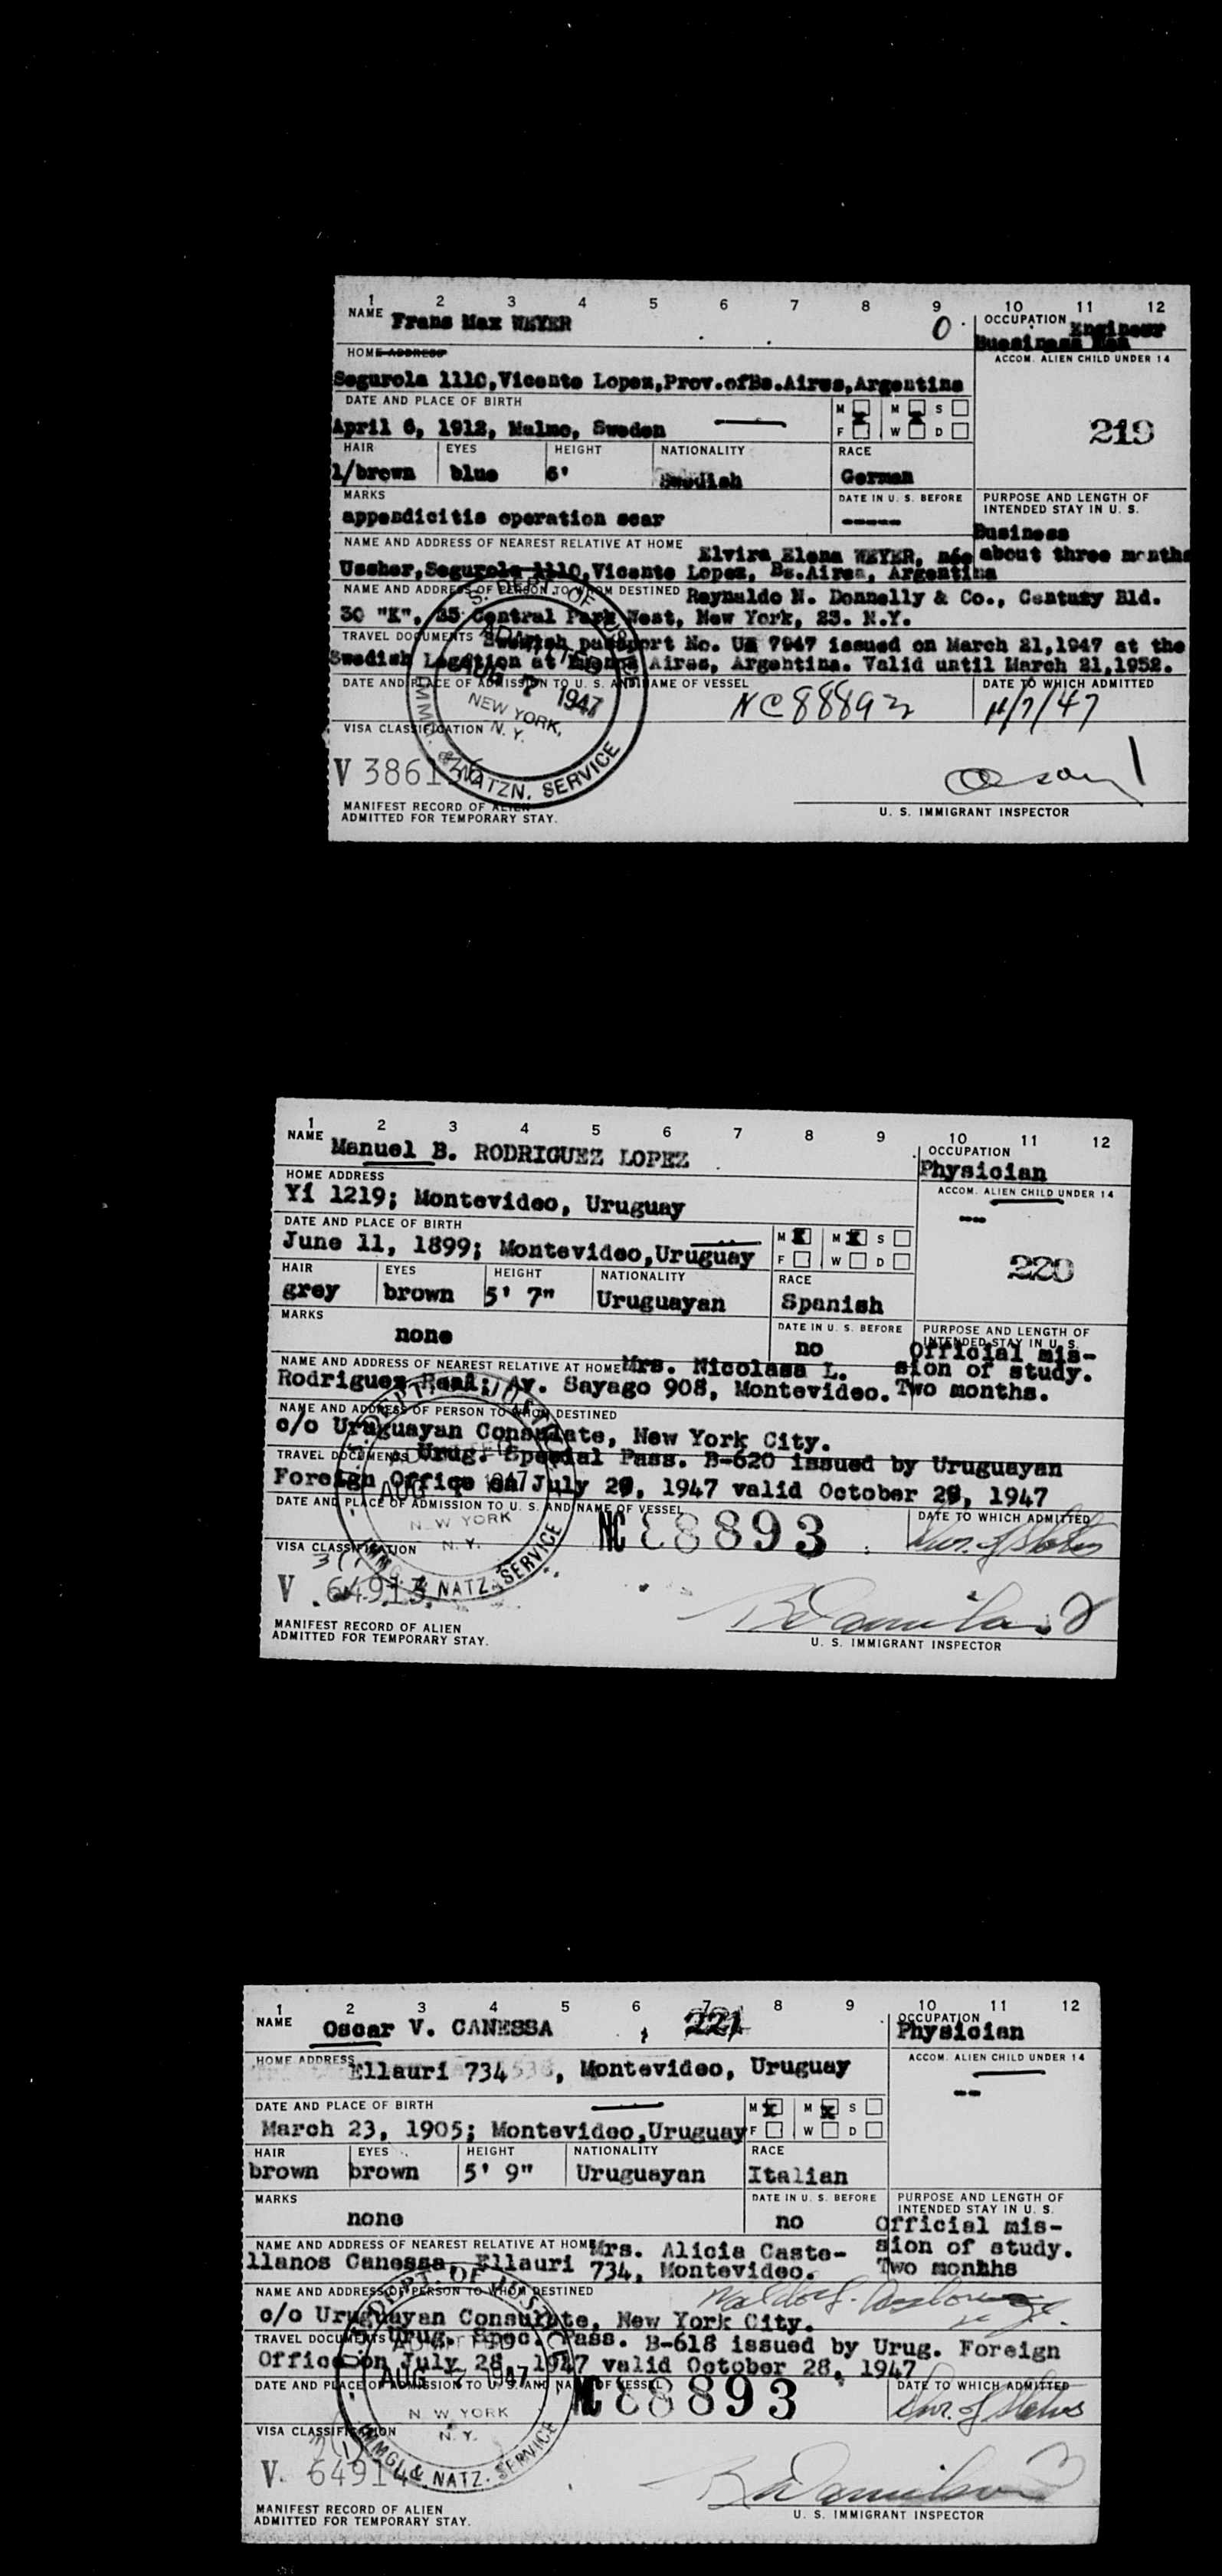 1 2 3 4 5 6 7 8 9 10 11 12
NAME Frans Max WEYER O. OCCUPATION Engineer
Buesiness Men
HOME ADDRESS
ACCOM. ALIEN CHILD UNDER 14
Segurola 1110,Vicente Lopez,Prov.ofBs.Aires,Argentina
DATE AND PLACE OF BIRTH M M S
219
April 6, 1912, Malmo, Sweden F W D
HAIR EYES HEIGHT NATIONALITY RACE
l/brown blue 6' Swedish German
MARKS DATE IN U. S. BEFORE PURPOSE AND LENGTH OF
INTENDED STAY IN U. S.
appendicitis operation scar -----
Business
NAME AND ADDRESS OF NEAREST RELATIVE AT HOME Elvira Elena WEYER, née about three months
Ussher,Segurola 1110,Vicente Lopez, Bs.Aires, Argentina
NAME AND ADDRESS OF PERSON TO WHOM DESTINED Reynaldo N. Donnelly & Co., Century Bld.
30 "K", 25 Central Park West, New York, 23. N.Y.
TRAVEL DOCUMENTS Swedish passport No. UA 7947 issued on March 21,1947 at the
Swedish Legation at Buenos Aires, Argentina. Valid until March 21,1952.
DATE AND PLACE OF ADMISSION TO U. S. AND NAME OF VESSEL DATE TO WHICH ADMITTED
1947 NC88893 11/7/47
NEW YORK,
N. Y.
VISA CLASSIFICATION
IMM. & NATZN. SERVICE
MANIFEST RECORD OF ALIEN
ADMITTED FOR TEMPORARY STAY.
U. S. IMMIGRANT INSPECTOR
1 2 3 4 5 6 7 8 9 10 11 12
NAME Manuel B. RODRIGUEZ LOPEZ OCCUPATION
Physician
HOME ADDRESS ACCOM. ALIEN CHILD UNDER 14
Yi 1219; Montevideo, Uruguay ---
DATE AND PLACE OF BIRTH M X M X S
June 11, 1899; Montevideo,Uruguay F W D
220
HAIR EYES HEIGHT NATIONALITY RACE
grey brown 5' 7" Uruguayan Spanish
MARKS DATE IN U. S. BEFORE PURPOSE AND LENGTH OF
INTENDED STAY IN U. S.
none no Official mis-
NAME AND ADDRESS OF NEAREST RELATIVE AT HOME Mrs. Nicolasa L. sion of study.
Rodriguez Real; Av. Sayago 908, Montevideo. Two months.
NAME AND ADDRESS OF PERSON TO WHOM DESTINED
c/o Uruguayan Consulate, New York City.
TRAVEL DOCUMENTS Urug. Special Pass. B-620 issued by Uruguayan
Foreign Office on July 29, 1947 valid October 29, 1947
DATE AND PLACE OF ADMISSION TO U. S. AND NAME OF VESSEL DATE TO WHICH ADMITTED
AUG 1947 NC 88893 Dur. of Status
N W YORK
N. Y.
VISA CLASSIFICATION
V 64913
NATZ. SERVICE
MANIFEST RECORD OF ALIEN
ADMITTED FOR TEMPORARY STAY.
U. S. IMMIGRANT INSPECTOR
1 2 3 4 5 6 7 8 9 10 11 12
NAME Oscar V. CANESSA 221 OCCUPATION
Physician
HOME ADDRESS ACCOM. ALIEN CHILD UNDER 14
Ellauri 734 , Montevideo, Uruguay --
DATE AND PLACE OF BIRTH M X M X S
March 23, 1905; Montevideo,Uruguay F W D
HAIR EYES HEIGHT NATIONALITY RACE
brown brown 5' 9" Uruguayan Italian
MARKS DATE IN U. S. BEFORE PURPOSE AND LENGTH OF
INTENDED STAY IN U. S.
none no Official mis-
NAME AND ADDRESS OF NEAREST RELATIVE AT HOME Mrs. Alicia Caste- sion of study.
llanos Canessa, Ellauri 734, Montevideo. Two monhhs
NAME AND ADDRESS OF PERSON TO WHOM DESTINED
c/o Uruguayan Consulate, New York City.
TRAVEL DOCUMENTS Urug. Spec. Pass. B-618 issued by Urug. Foreign
Office on July 28, 1947 valid October 28, 1947
DATE AND PLACE OF ADMISSION TO U. S. AND NAME OF VESSEL DATE TO WHICH ADMITTED
AUG 7 1947 NC 88893 Dur. of Status
N W YORK
N. Y.
VISA CLASSIFICATION
V. 64914
IMMGR. & NATZ. SERVICE
MANIFEST RECORD OF ALIEN
ADMITTED FOR TEMPORARY STAY.
U. S. IMMIGRANT INSPECTOR